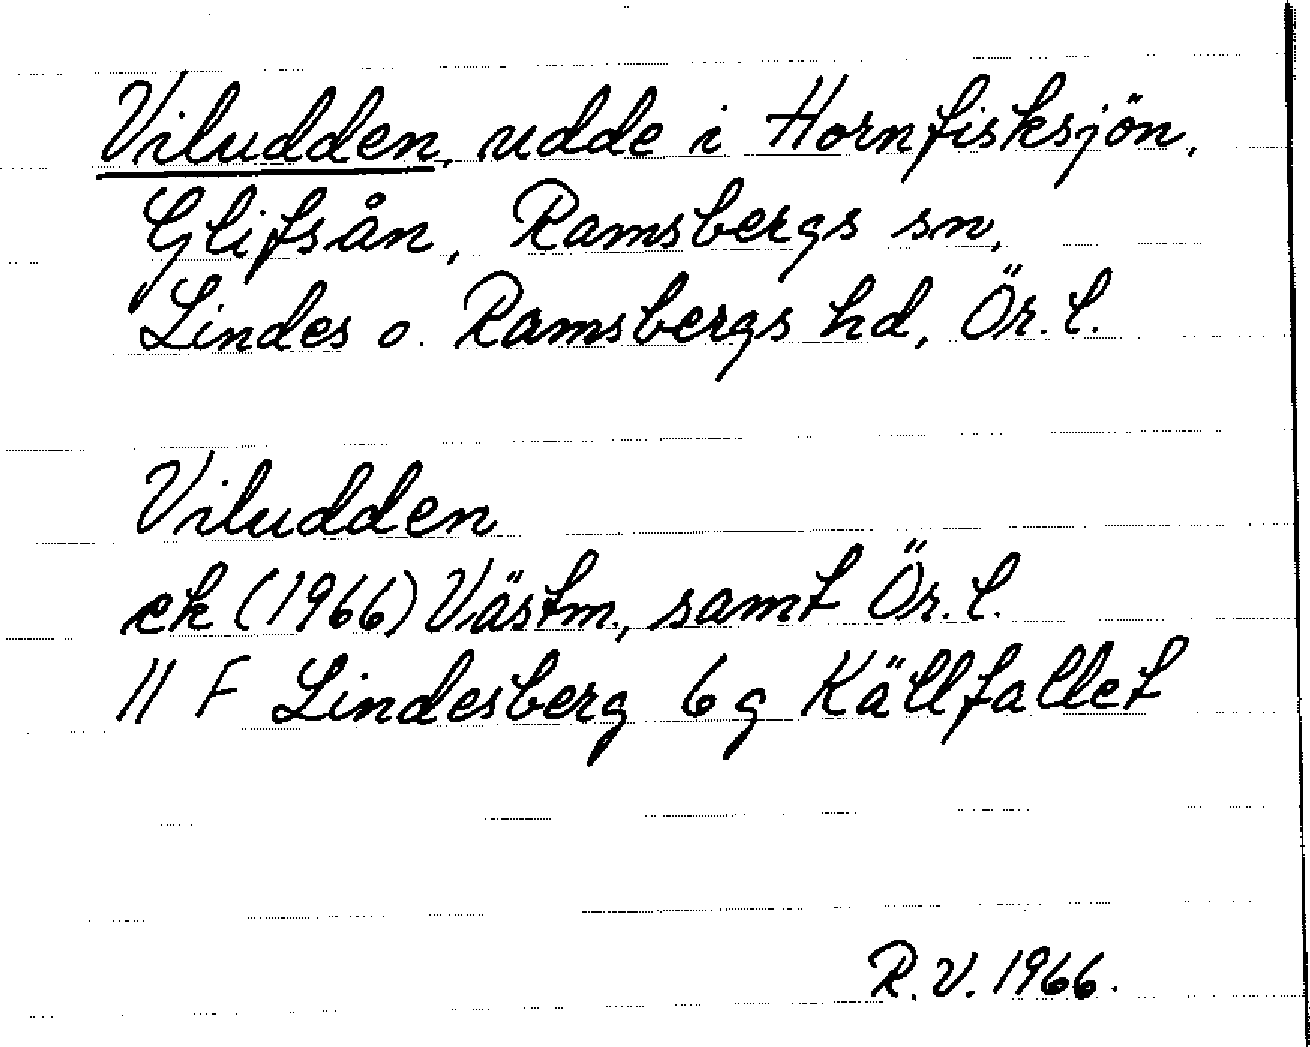 Viludden, udde i Hornfisksjön,
Glifsån, Ramsbergs sn,
Lindes o. Ramsbergs hd, Ör. l.
Viludden
ek (1966) Västm., samt Ör. l.
11 F Lindesberg 6 g Källfallet
R. V. 1966.